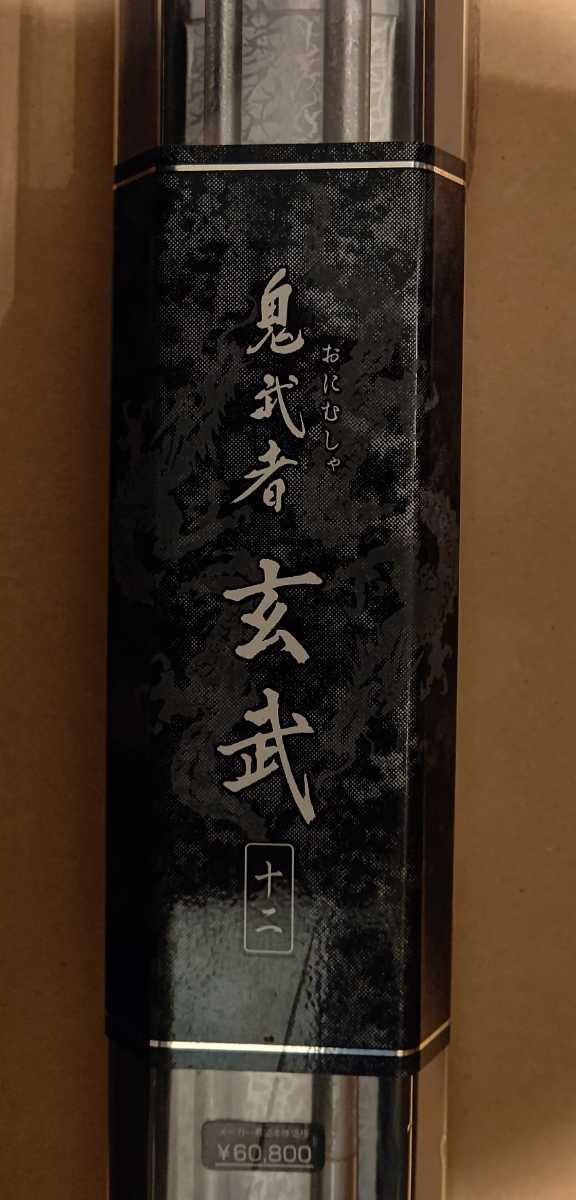 鬼武者
おにむしゃ
玄武
十二
メーカー希望本体価格
¥60,800